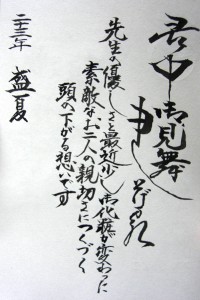 暑中御見舞
申し上げます
先生の優しさと最近少し御化粧が変わった
素敵なお二人の親切さにつくづく
頭の下がる想いです
二十三年 盛夏